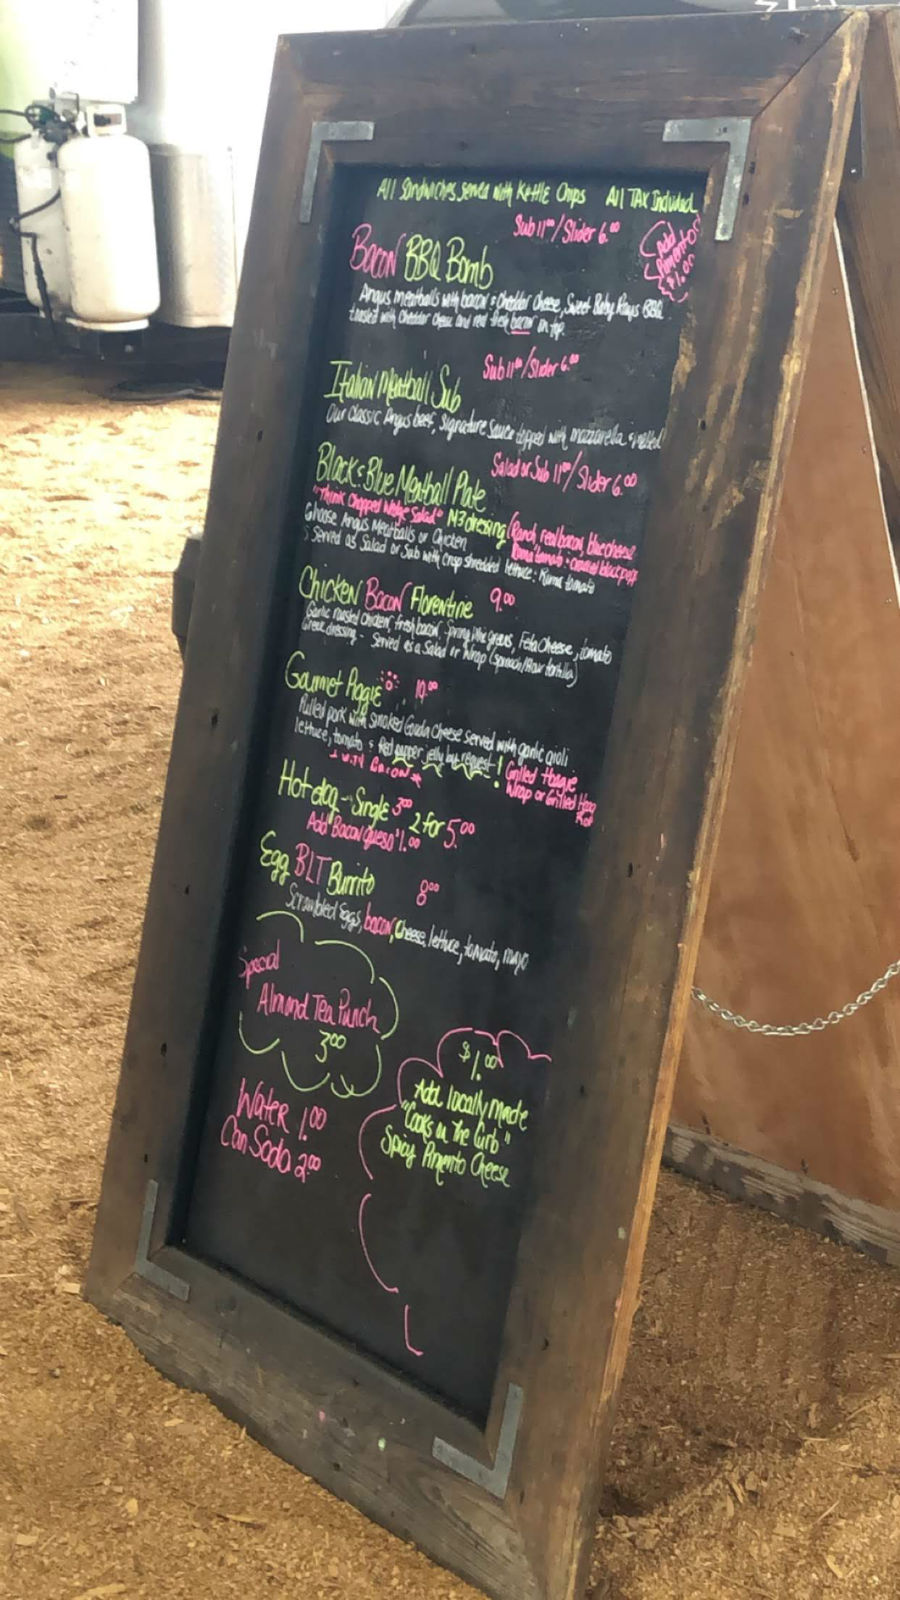 All Sandwiches served with Kettle Chips All TAX Included
Sub 11⁰⁰ / Slider 6.⁰⁰
Add Pimento $1.00
Bacon BBQ Bomb
Angus meatballs with bacon & cheddar cheese, Sweet Baby Rays BBQ
toasted with cheddar cheese and real fresh bacon on top.
Sub 11⁰⁰ / Slider 6.⁰⁰
Italian Meatball Sub
Our Classic Angus beef, Signature Sauce topped with mozzarella & melted
Salad or Sub 11⁰⁰ / Slider 6.⁰⁰
Black & Blue Meatball Plate
"Think Chopped Wedge Salad" M3 dressing (Ranch, real bacon, blue cheese
Roma tomato & cracked black pepper
Choose Angus Meatballs or Chicken
Served as Salad or Sub with crisp shredded lettuce & Roma tomato
Chicken Bacon Florentine 9.⁰⁰
Garlic roasted chicken, fresh bacon, spring mix greens, Feta Cheese, tomato
Greek dressing - Served as a Salad or Wrap (Spinach/flour tortilla)
Gourmet Piggie 10.⁰⁰
Pulled pork with smoked Gouda Cheese served with garlic aioli
lettuce, tomato & Red pepper jelly by request!
Grilled Hoagie
Wrap or Grilled
Hot dog - Single 3⁰⁰ 2 for 5.⁰⁰
Add "Bacon Queso" 1.00
Egg BLT Burrito 8⁰⁰
Scrambled Eggs, bacon, Cheese, lettuce, tomato, mayo
Special
Almond Tea Punch
3⁰⁰
$1.⁰⁰
Add locally made
"Cooks on the Curb"
Spicy Pimento Cheese
Water 1.00
Can Soda 2.⁰⁰